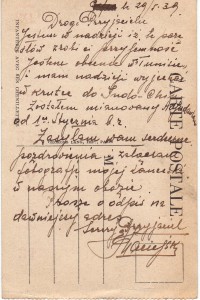 29/5.39
Drogi Przyjacielu
Jestem w nadzieji iż te parę
słów zrobi ci przyjemność
Jestem obecnie w Tunisie
i mam nadzieji wyjechać
w krutce do Indo Chin
Zostałem mianowany
od 1 Stycznia b.r.
Zasyłam wam serdeczne
pozdrowienia i załaczam
fotografje mojej
Proszę o odpis na
dawniejszy adres
Przyjaciel
CARTE POSTALE